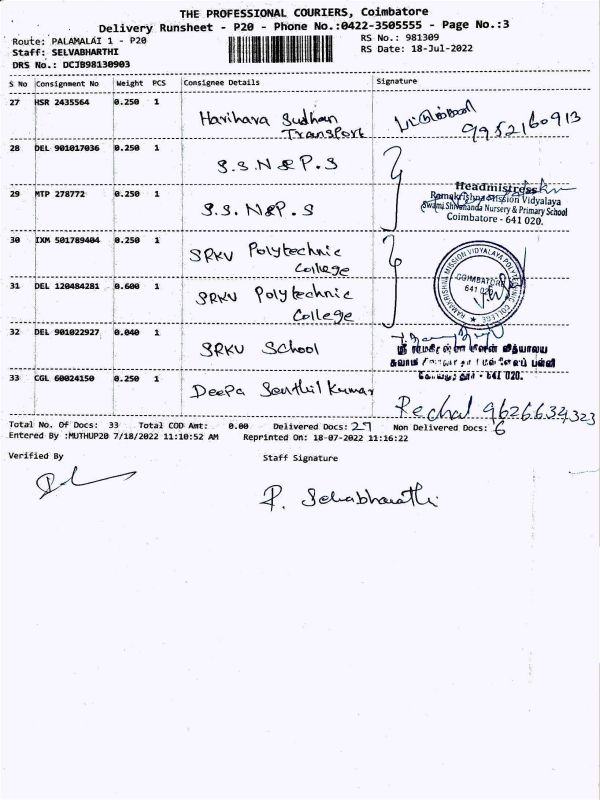 THE PROFESSIONAL COURIERS, Coimbatore
Delivery Runsheet - P20 - Phone No.:0422-3505555 - Page No.:3
Route: PALAMALAI 1 - P20
RS No.: 981309
Staff: SELVABHARTHI
RS Date: 18-Jul-2022
DRS No.: DCJB98130903
S No Consignment No Weight PCS Consignee Details Signature
27 HSR 2435564 0.250 1 Harihara Sudhan
Transport
9952160913
28 DEL 901017036 0.250 1 S.S.N&P.S
29 MTP 278772 0.250 1 S.S. N&P.S
Headmistress
Ramakrishna Mission Vidyalaya
Swami Shivananda Nursery & Primary School
Coimbatore - 641 020.
30 IXM 501789404 0.250 1 SRKV Polytechnic
College
31 DEL 120484281 0.600 1 SRKV Polytechnic
College
RAMAKRISHNA MISSION VIDYALAYA POLYTECHNIC COLLEGE
COIMBATORE
641 020
32 DEL 901022927 0.040 1 SRKV School
641 020.
33 CGL 60024150 0.250 1 Deepa Senthil kumar
Rechal 9626634323
Total No. Of Docs: 33 Total COD Amt: 0.00 Delivered Docs: 27 Non Delivered Docs: 6
Entered By :MUTHUP20 7/18/2022 11:10:52 AM Reprinted On: 18-07-2022 11:16:22
Verified By Staff Signature